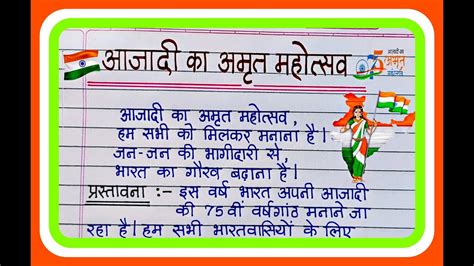 आजादी का अमृत महोत्सव
आज़ादी का
अमृत महोत्सव
आजादी का अमृत महोत्सव,
हम सभी को मिलकर मनाना है।
जन-जन की भागीदारी से,
भारत का गौरव बढ़ाना है।
प्रस्तावना :- इस वर्ष भारत अपनी आजादी
की 75वीं वर्षगांठ मनाने जा
रहा है। हम सभी भारतवासियों के लिए